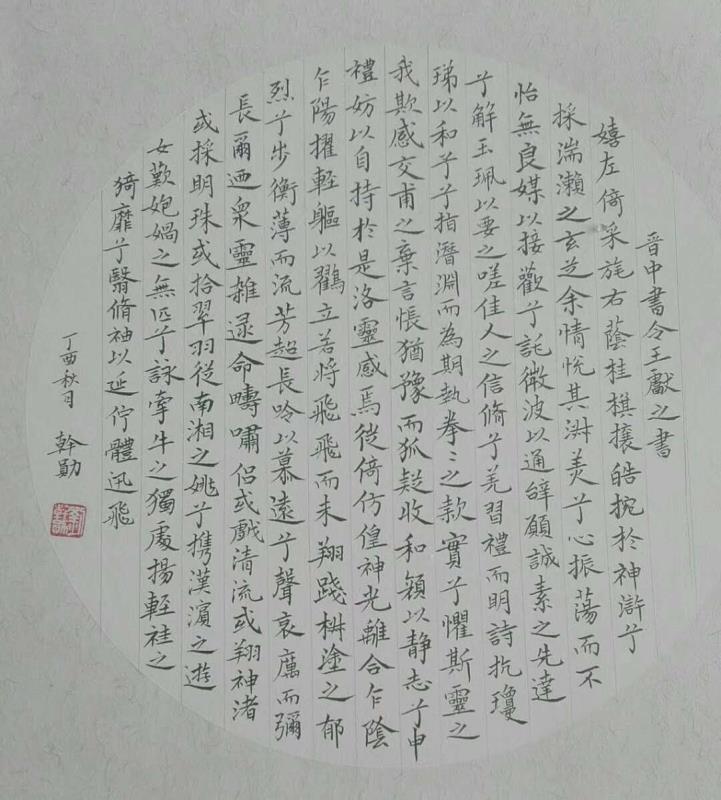 晋中書令王獻之書
嬉左倚采旄右蔭桂棋攘皓捥於神滸兮
採湍瀨之玄芝余情悅其淑美兮心振蕩而不
怡無良媒以接歡兮託微波以通辝願誠素之先達
兮解玉珮以要之嗟佳人之信脩兮羌習禮而明詩抗瓊
珶以和兮兮指潛淵而為期執拳〻之款實兮懼斯靈之
我欺感交甫之棄言悵猶豫而狐疑收和顏以静志兮申
禮妨以自持於是洛靈感焉徙倚仿偟神光離合乍陰
乍陽擢輕軀以鸖立若將飛飛而未翔踐椒塗之郁
烈兮步衡薄而流芳超長吟以慕遠兮聲哀厲而彌
長爾迺衆靈雜遝命疇嘯侣或戲清流或翔神渚
或採明珠或拾翠羽從南湘之姚兮携漢濱之遊
女歎炰媧之無匹兮詠牽牛之獨處揚輕袿之
猗靡兮翳脩袖以延佇體迅飛
丁酉秋月 幹勛